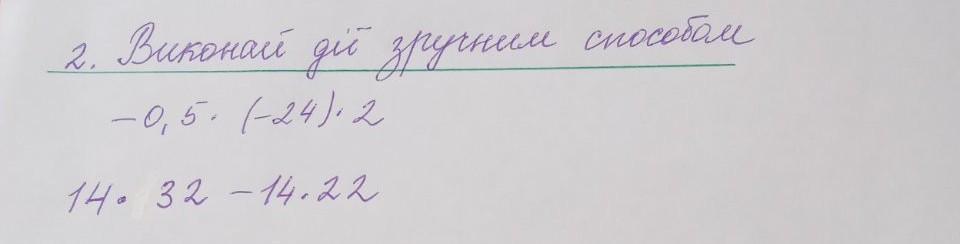 2. Виконай дії зручним способом
-0,5 · (-24) · 2
14 · 32 - 14 · 22